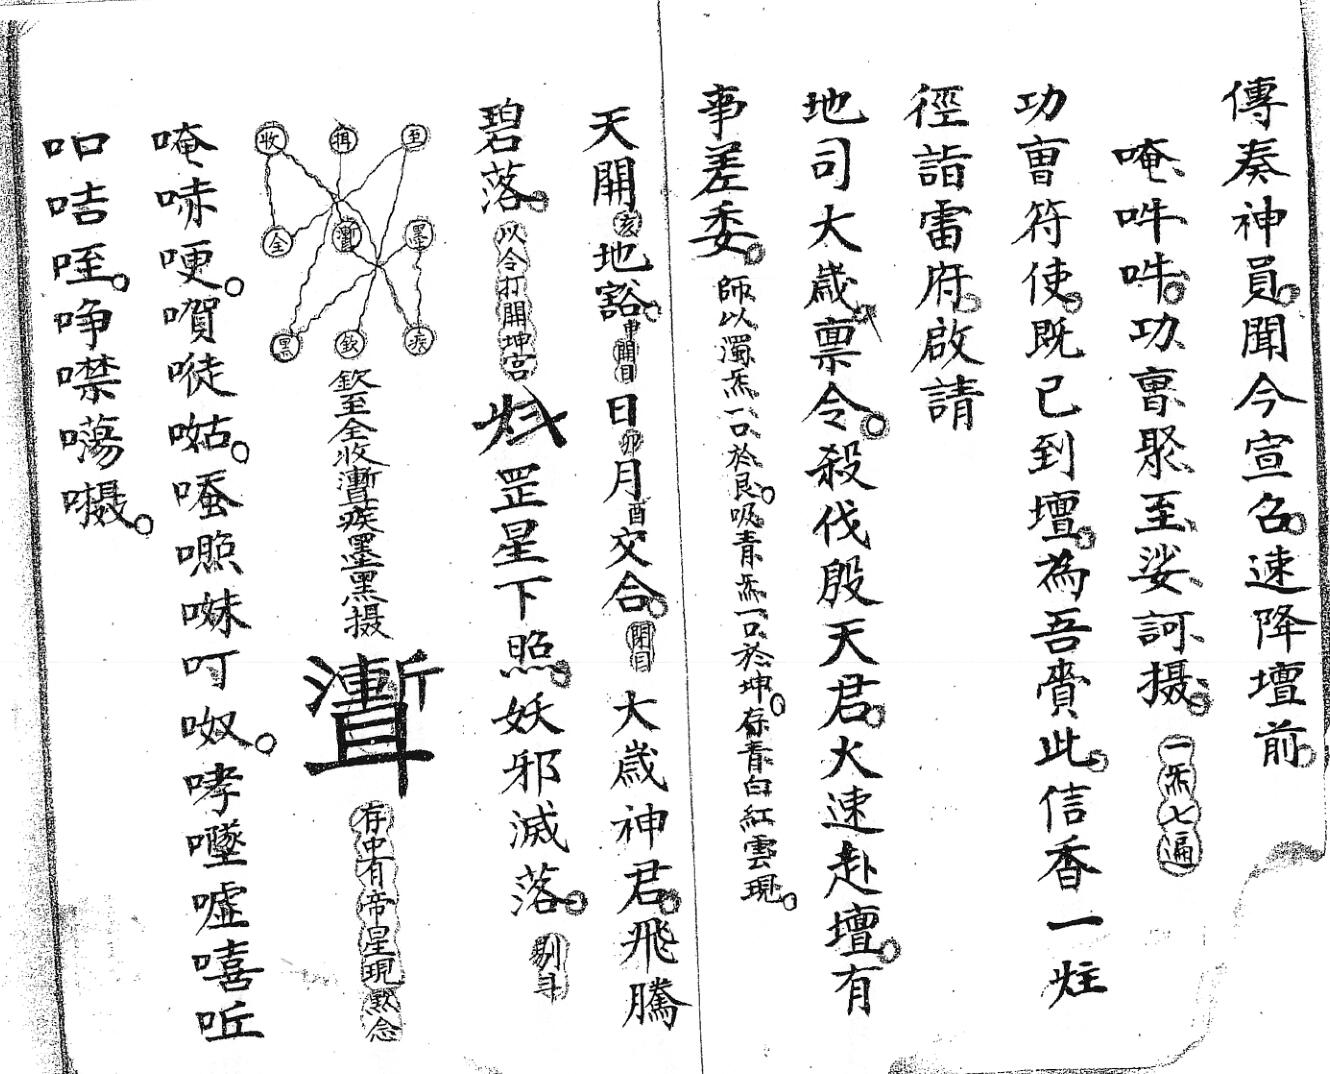 傳奏神員聞今宣召速降壇前
唵吽吽功曹聚至娑訶摄一炁七遍
功曹符使既已到壇為吾賫此信香一炷
徑詣雷府啟請
地司大歲禀令殺伐殷天君火速赴壇有
事差委師以濁炁一口於艮吸青炁一口於坤存青白紅雲現
天開亥地豁申開目日卯月酉交合閉目大歲神君飛騰
碧落以令打開坤宮罡星下照妖邪滅落剔斗
收 捐 至
全 墨
黑 欽 疾
欽至全收疾墨黑摄
存中有帝星現默念
唵哧哽嘪唗㗅叮呶哮嘘嘻
吉咥噤